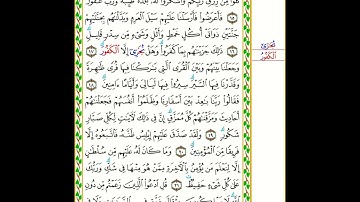 كُلُوا۟ مِن رِّزْقِ رَبِّكُمْ وَٱشْكُرُوا۟ لَهُۥ بَلْدَةٌ طَيِّبَةٌ وَرَبٌّ غَفُورٌ
١٥ فَأَعْرَضُوا۟ فَأَرْسَلْنَا عَلَيْهِمْ سَيْلَ ٱلْعَرِمِ وَبَدَّلْنَـٰهُم بِجَنَّتَيْهِمْ
جَنَّتَيْنِ ذَوَاتَىْ أُكُلٍ خَمْطٍ وَأَثْلٍ وَشَىْءٍ مِّن سِدْرٍ قَلِيلٍ
١٦ ذَٰلِكَ جَزَيْنَـٰهُم بِمَا كَفَرُوا۟ وَهَلْ نُجَـٰزِىٓ إِلَّا ٱلْكَفُورَ ١٧
وَجَعَلْنَا بَيْنَهُمْ وَبَيْنَ ٱلْقُرَى ٱلَّتِى بَـٰرَكْنَا فِيهَا قُرًى ظَـٰهِرَةً
وَقَدَّرْنَا فِيهَا ٱلسَّيْرَ سِيرُوا۟ فِيهَا لَيَالِىَ وَأَيَّامًا ءَامِنِينَ ١٨
فَقَالُوا۟ رَبَّنَا بَـٰعِدْ بَيْنَ أَسْفَارِنَا وَظَلَمُوٓا۟ أَنفُسَهُمْ فَجَعَلْنَـٰهُمْ
أَحَادِيثَ وَمَزَّقْنَـٰهُمْ كُلَّ مُمَزَّقٍ إِنَّ فِى ذَٰلِكَ لَـَٔايَـٰتٍ لِّكُلِّ صَبَّارٍ
شَكُورٍ ١٩ وَلَقَدْ صَدَّقَ عَلَيْهِمْ إِبْلِيسُ ظَنَّهُۥ فَٱتَّبَعُوهُ إِلَّا
فَرِيقًا مِّنَ ٱلْمُؤْمِنِينَ ٢٠ وَمَا كَانَ لَهُۥ عَلَيْهِم مِّن سُلْطَـٰنٍ
إِلَّا لِنَعْلَمَ مَن يُؤْمِنُ بِٱلْـَٔاخِرَةِ مِمَّنْ هُوَ مِنْهَا فِى شَكٍّ وَرَبُّكَ
عَلَىٰ كُلِّ شَىْءٍ حَفِيظٌ ٢١ قُلِ ٱدْعُوا۟ ٱلَّذِينَ زَعَمْتُم مِّن دُونِ
نُجَـٰزِىٓ
ٱلْكَفُورَ